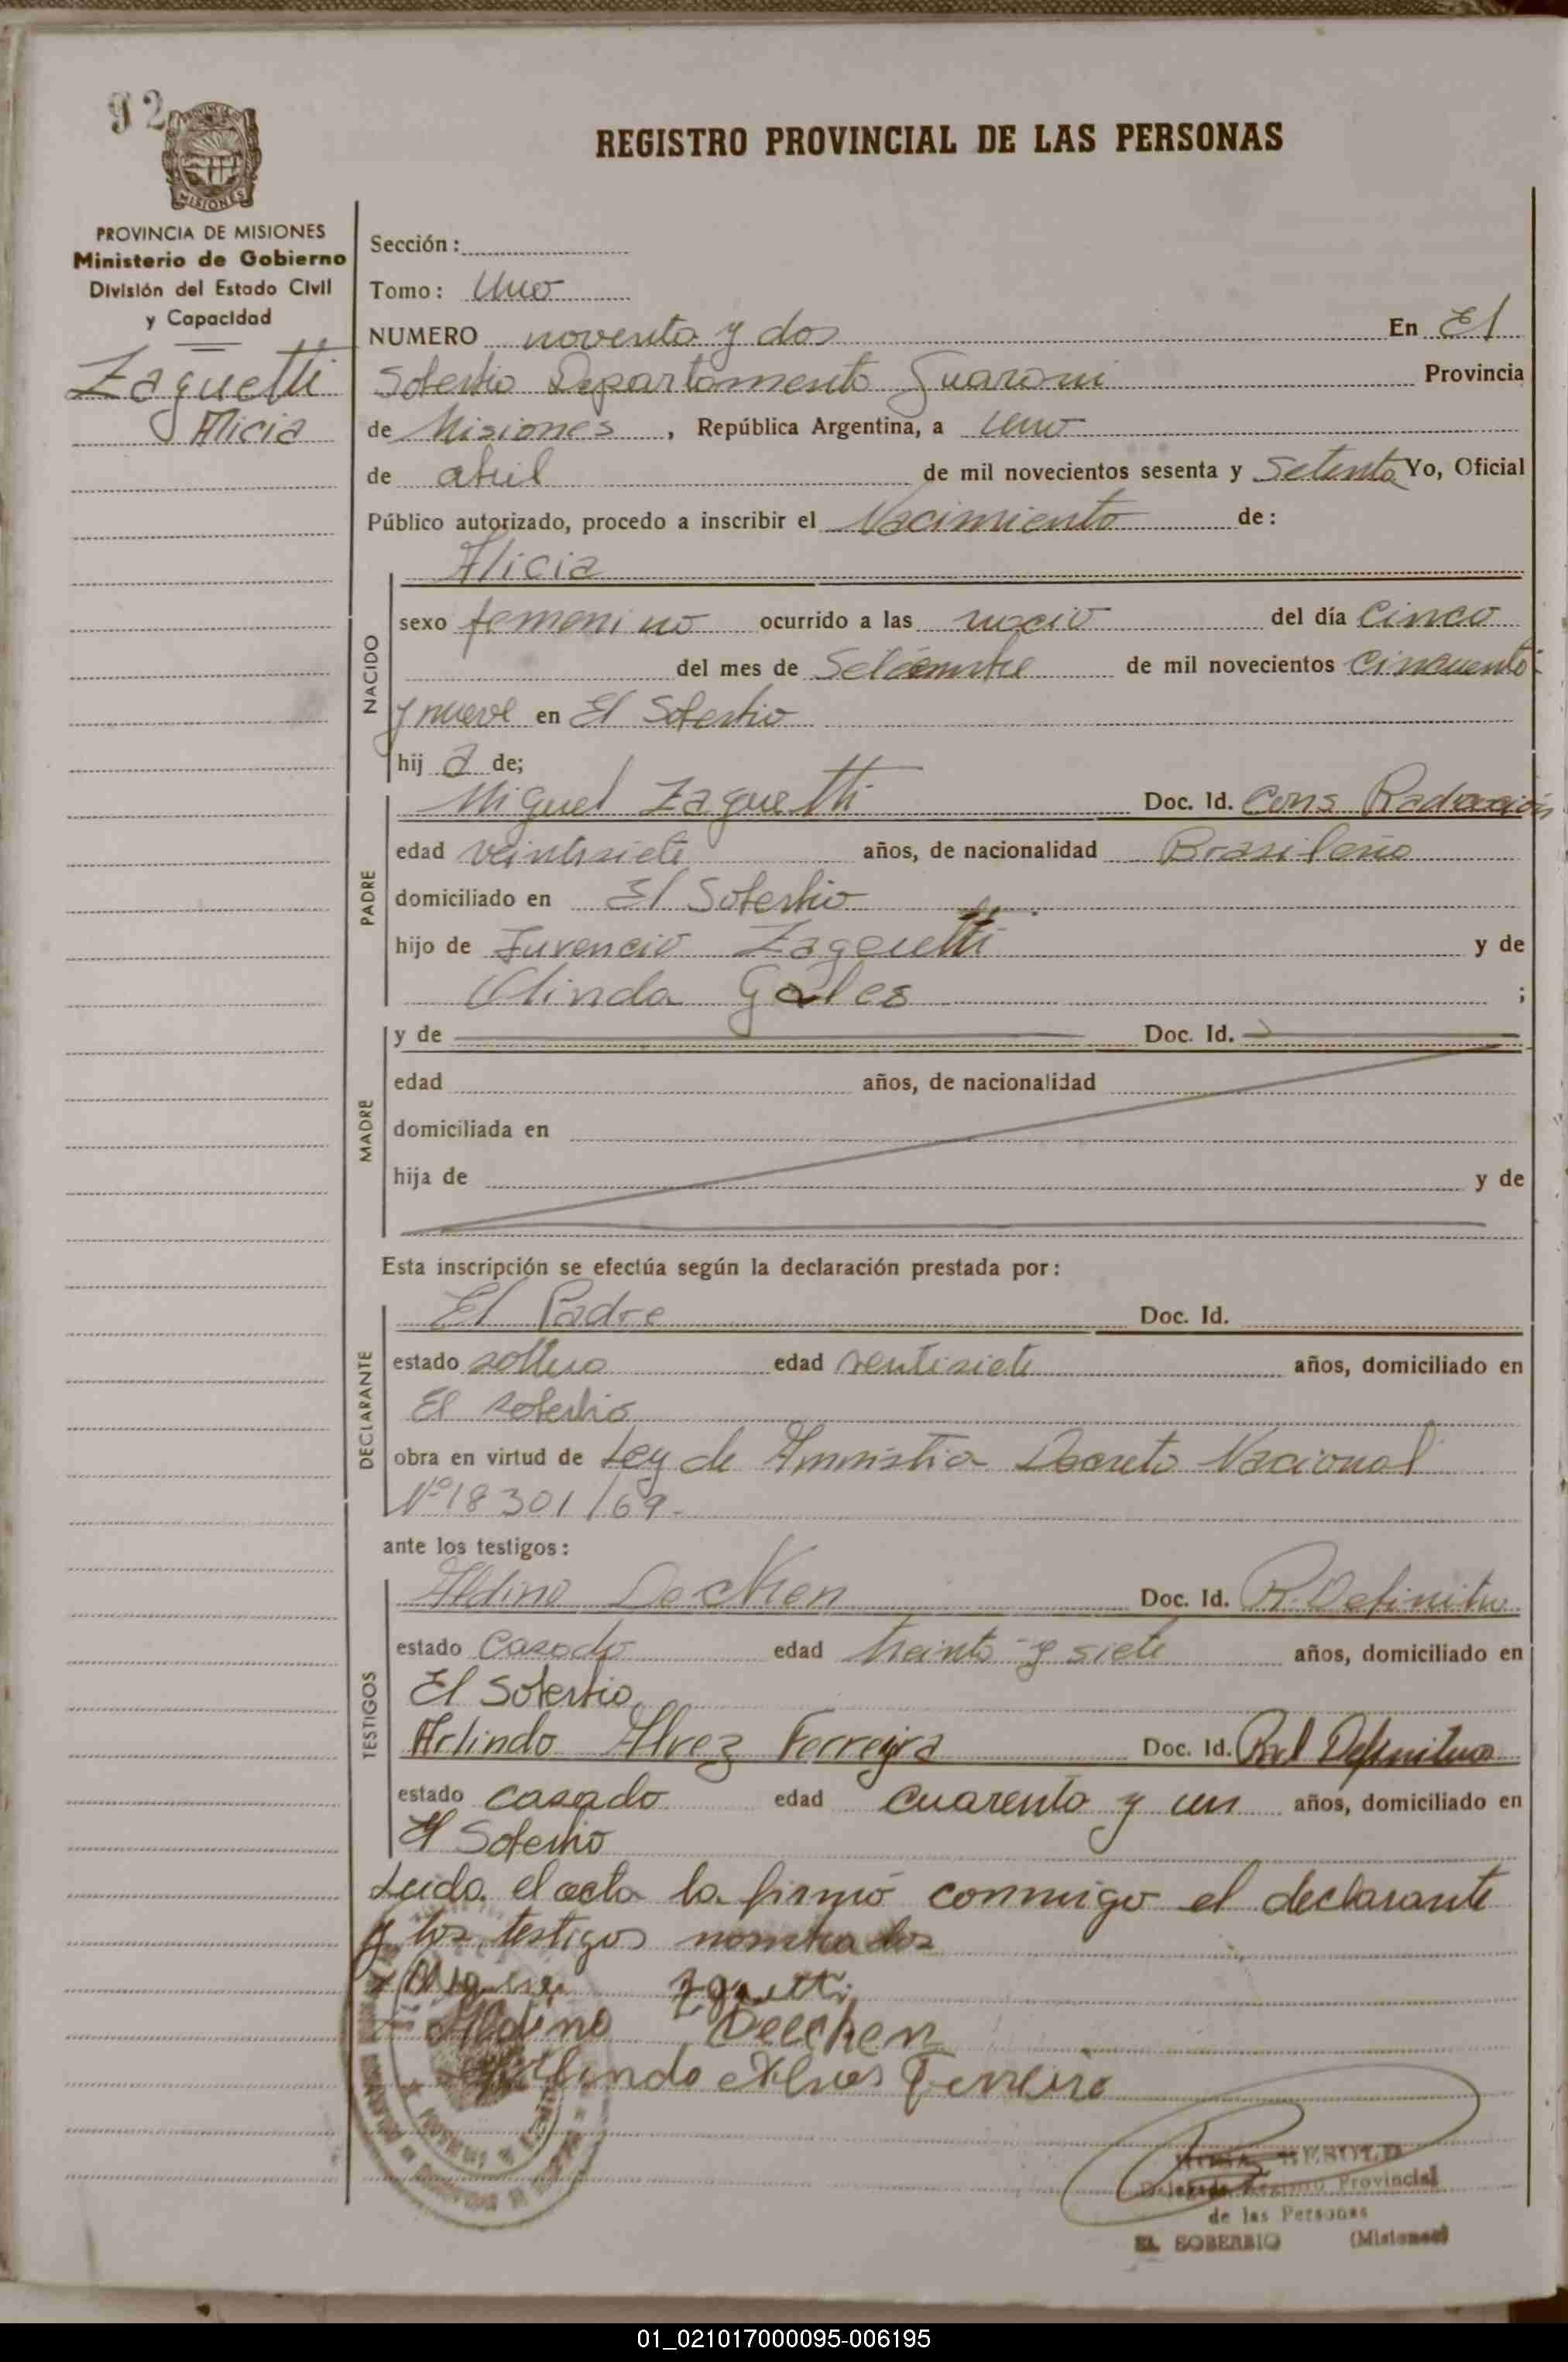 92
REGISTRO PROVINCIAL DE LAS PERSONAS
MISIONES
PROVINCIA DE MISIONES
Ministerio de Gobierno
División del Estado Civil
y Capacidad
Zaguetti
Alicia
Sección:
Tomo: Uno
NUMERO noventa y dos En El
Soberbio Departamento Guarani Provincia
de Misiones, República Argentina, a uno
de abril de mil novecientos sesenta y Setenta Yo, Oficial
Público autorizado, procedo a inscribir el Nacimiento de:
Alicia
NACIDO
sexo femenino ocurrido a las del día Cinco
del mes de de mil novecientos Cincuenta
y nueve en El Soberbio
hij a de;
PADRE
Miguel Zaguetti Doc. Id. Cons Radicación
edad veintisiete años, de nacionalidad Brasileño
domiciliado en El Soberbio
hijo de Juvencio Zaguetti y de
Olinda Gales ;
MADRE
y de Doc. Id.
edad años, de nacionalidad
domiciliada en
hija de y de
Esta inscripción se efectúa según la declaración prestada por:
DECLARANTE
El Padre Doc. Id.
estado soltero edad ventisiete años, domiciliado en
El soberbio
obra en virtud de Ley de Amnistia Decreto Nacional
Nº 18301/69.
ante los testigos:
TESTIGOS
Aldino Decken Doc. Id. R. Definitiva
estado Casado edad treinta y siete años, domiciliado en
El Soberbio
Arlindo Alvez Ferreyra Doc. Id. Rad Definitiva
estado casado edad cuarenta y un años, domiciliado en
El Soberbio
Leida el acta la firmó conmigo el declarante
y los testigos nombrados
Zguetti
Aldino Decken
Arlindo Alves Ferreira
Delegada Registro Provincial
de las Personas
EL SOBERBIO (Misiones)
01_021017000095-006195